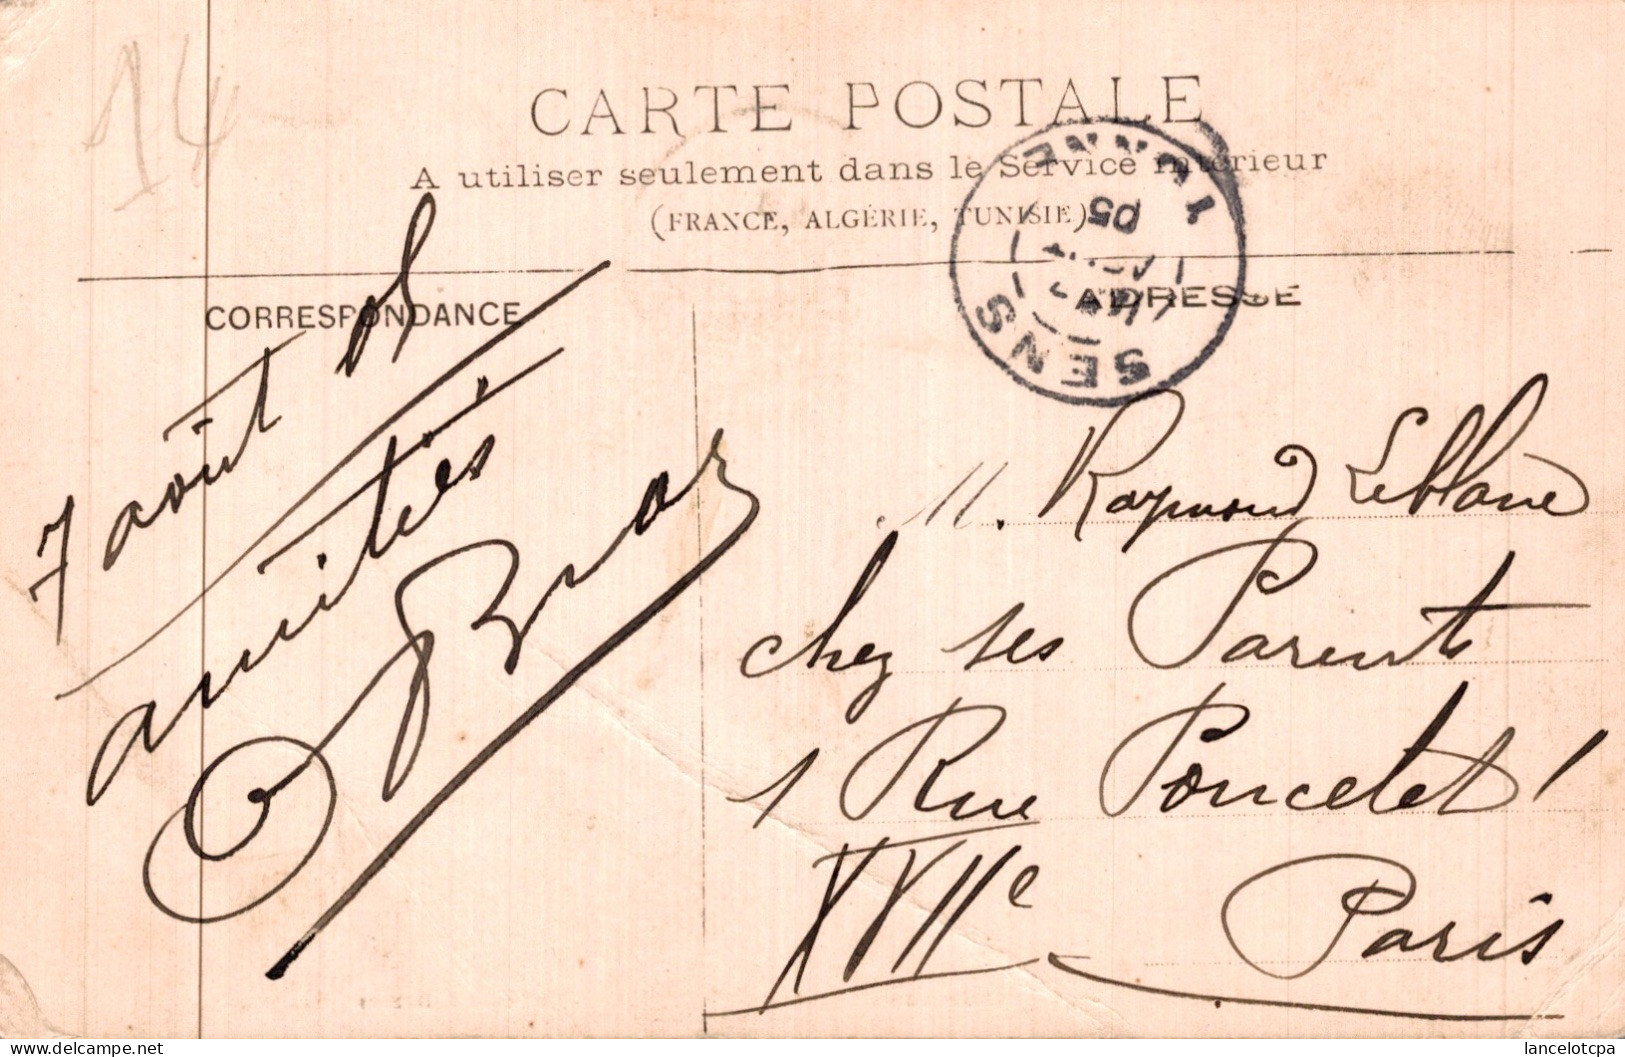 14
CARTE POSTALE
A utiliser seulement dans le Service intérieur
(FRANCE, ALGÉRIE, TUNISIE)
CORRESPONDANCE
ADRESSE
SENS
YONNE
05
7 août 05
amitiés
M. Raymond Leblanc
chez ses Parents
1 Rue Poncelet
XVIIe Paris
lancelotcpa